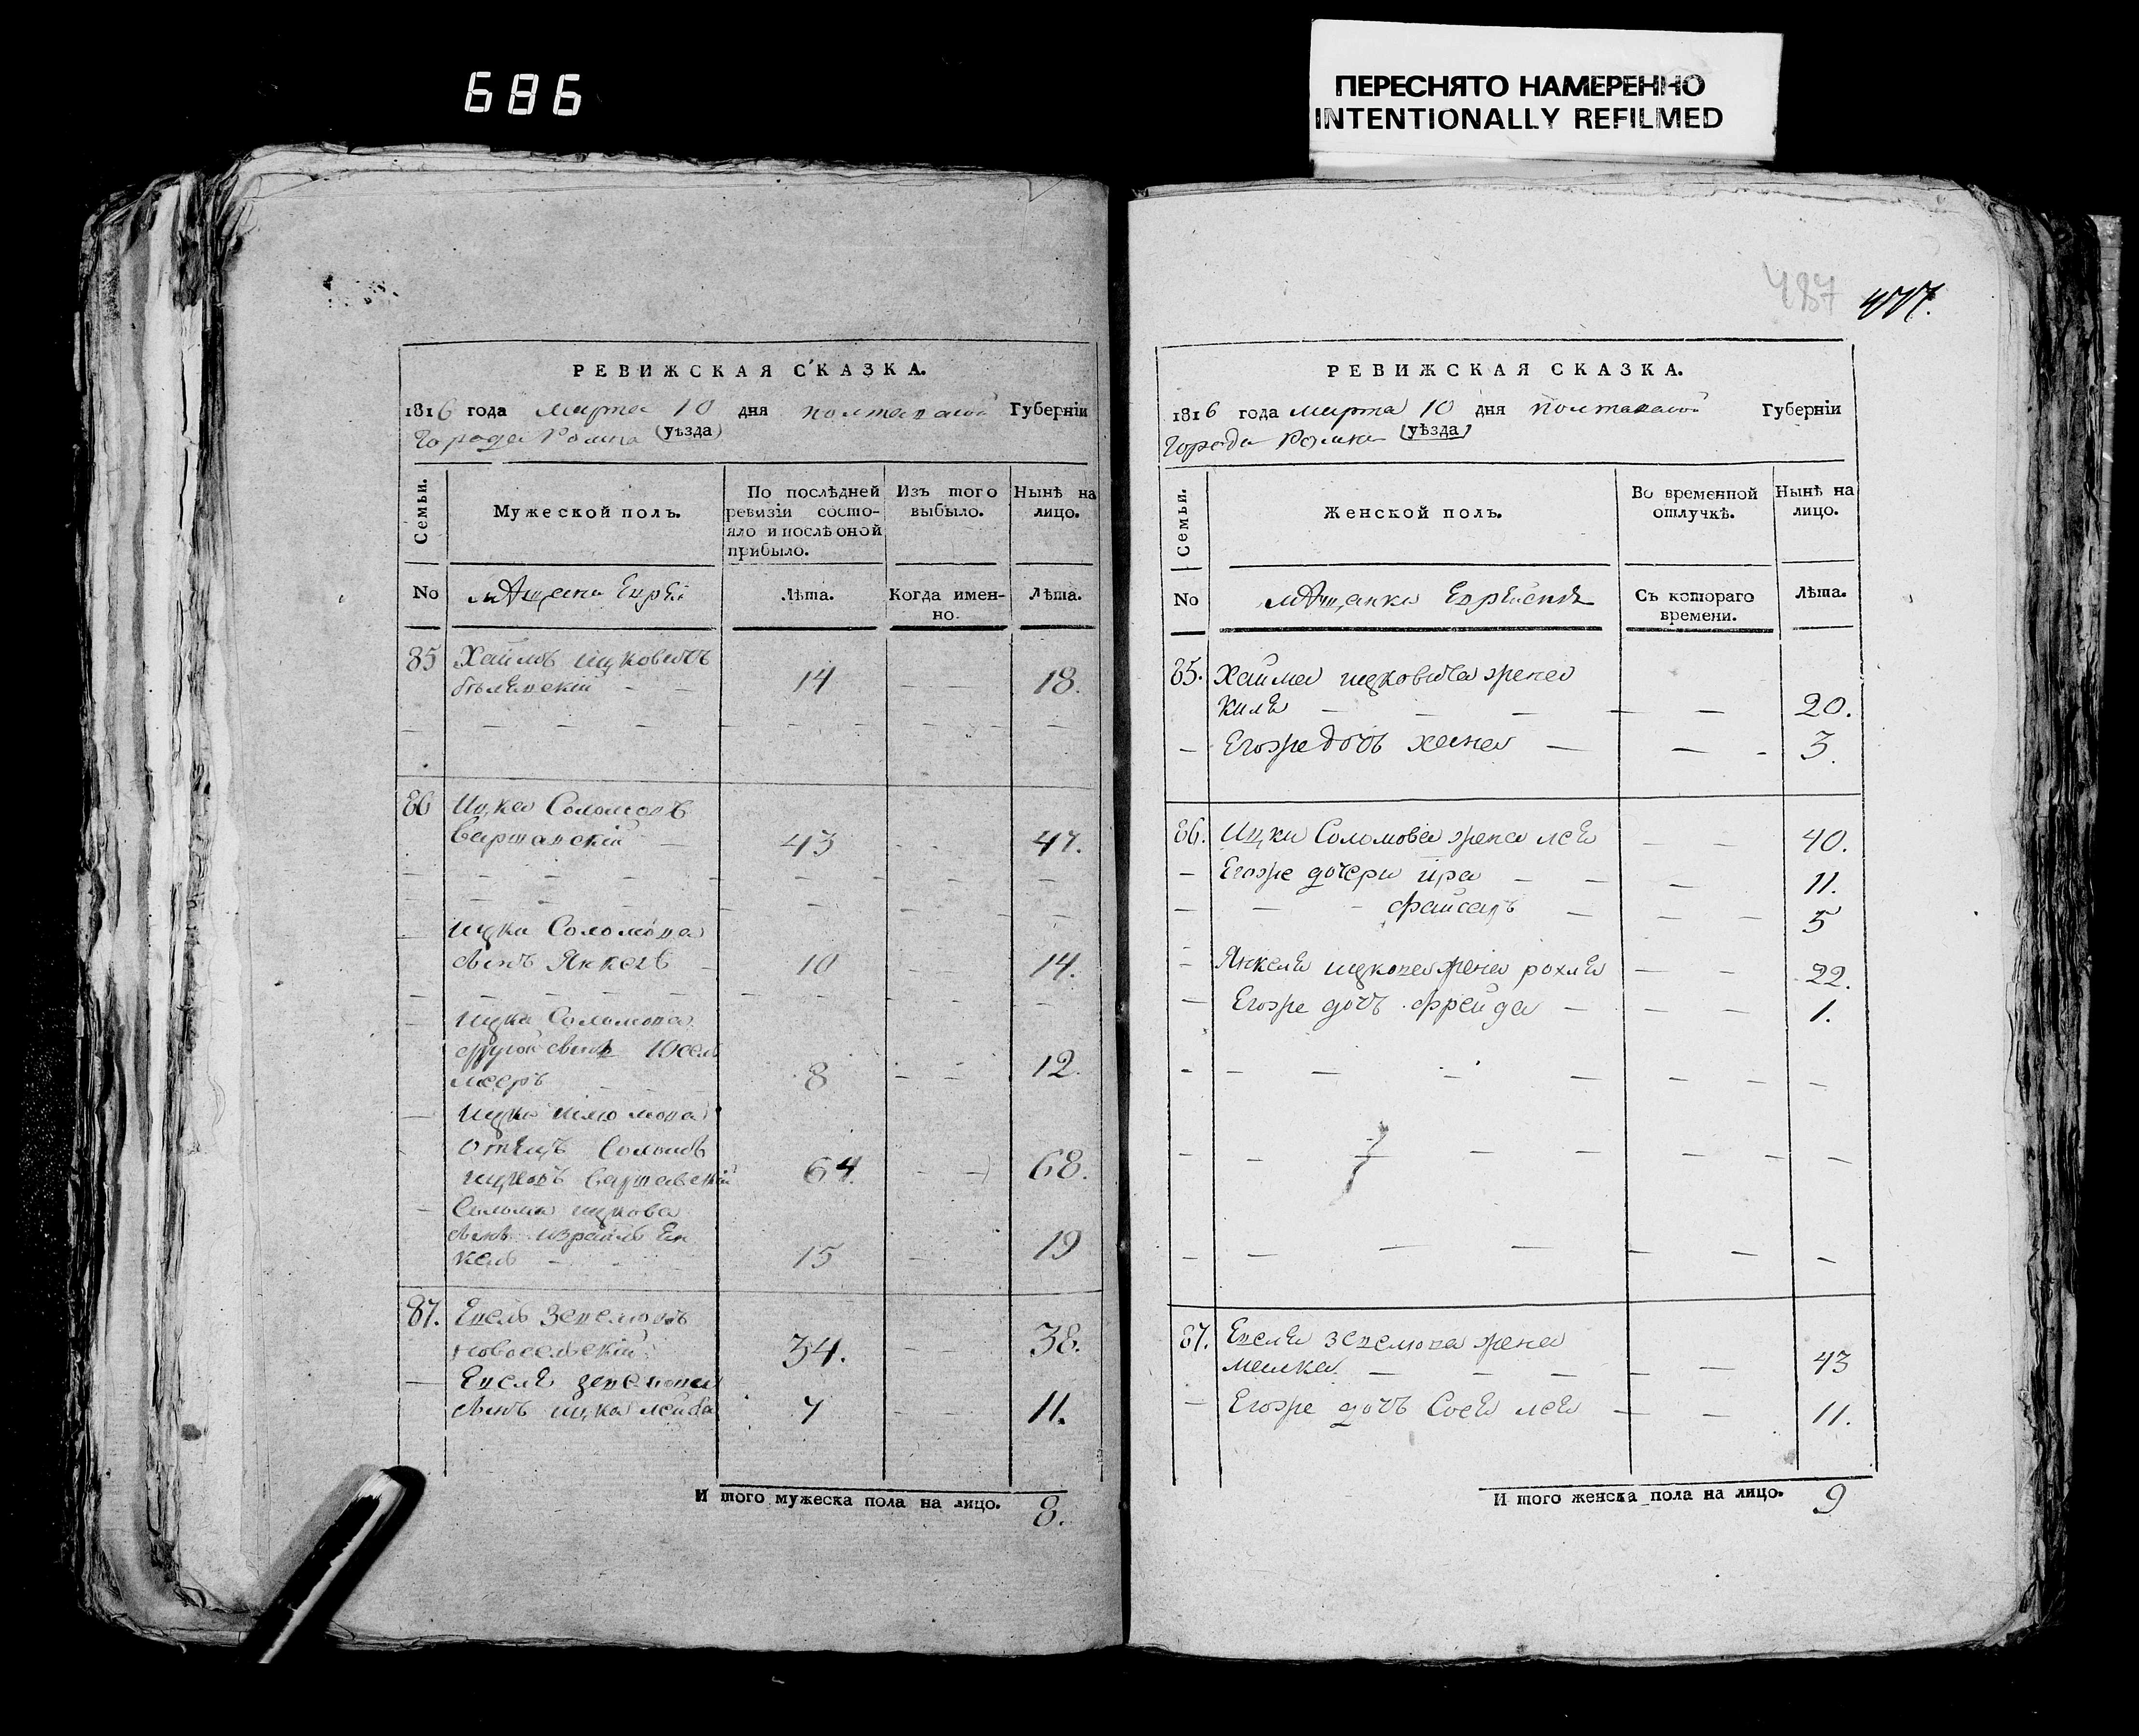 686
ПЕРЕСНЯТО НАМЕРЕННО
INTENTIONALLY REFILMED
487
477.
РЕВИЖСКАЯ СКАЗКА.
1816 года марта 10 дня полтавской Губерніи
Города Ромна (уѣзда)
Семьи.
Мужеской полъ.
По послѣдней ревизіи состо-
яло и послѣ оной
прибыло.
Изъ того
выбыло.
Нынѣ на
лицо.
No
мѣщане Евреи
Лѣта.
Когда имен-
но.
Лѣта.
85 Хаимъ ицковичъ
14 — — 18.
86 Ицка Соломовъ
Варшавскій — 43 - - 47.
ицки Соломона
сынъ Янкель — 10 14.
ицки Соломона
другой сынъ Юсель
мееръ 8 — — 12.
ицки
Отецъ Соломъ
ицковъ Варшавскій 64. — — 68.
Солома ицкова
сынъ израиль Ен
кель — 15 19
87. Евель
новосельскій 34. — — 38.
Евеля
сынъ ицка лейба 7 — — 11.
И того мужеска пола на лицо. 8.
РЕВИЖСКАЯ СКАЗКА.
1816 года марта 10 дня полтавской Губерніи
Города Ромна (уѣзда)
Семьи.
Женской полъ.
Во временной
отлучкѣ.
Нынѣ на
лицо.
No
мѣщанки Еврейскія
Съ котораго
времени.
Лѣта.
85. Хаима ицковича жена
20.
— Егоже дочь хана — — - 3.
86. Ицки Соломова жена лея — — 40.
— Егоже дочери — — — 11.
— — - — — — 5
- Янкеля ицкова жена рохля — — 22.
— Егоже дочь фрейда — — — 1.
87. Евеля жена
малка — — — — — 43
— Егоже дочь лея — — 11.
И того женска пола на лицо. 9